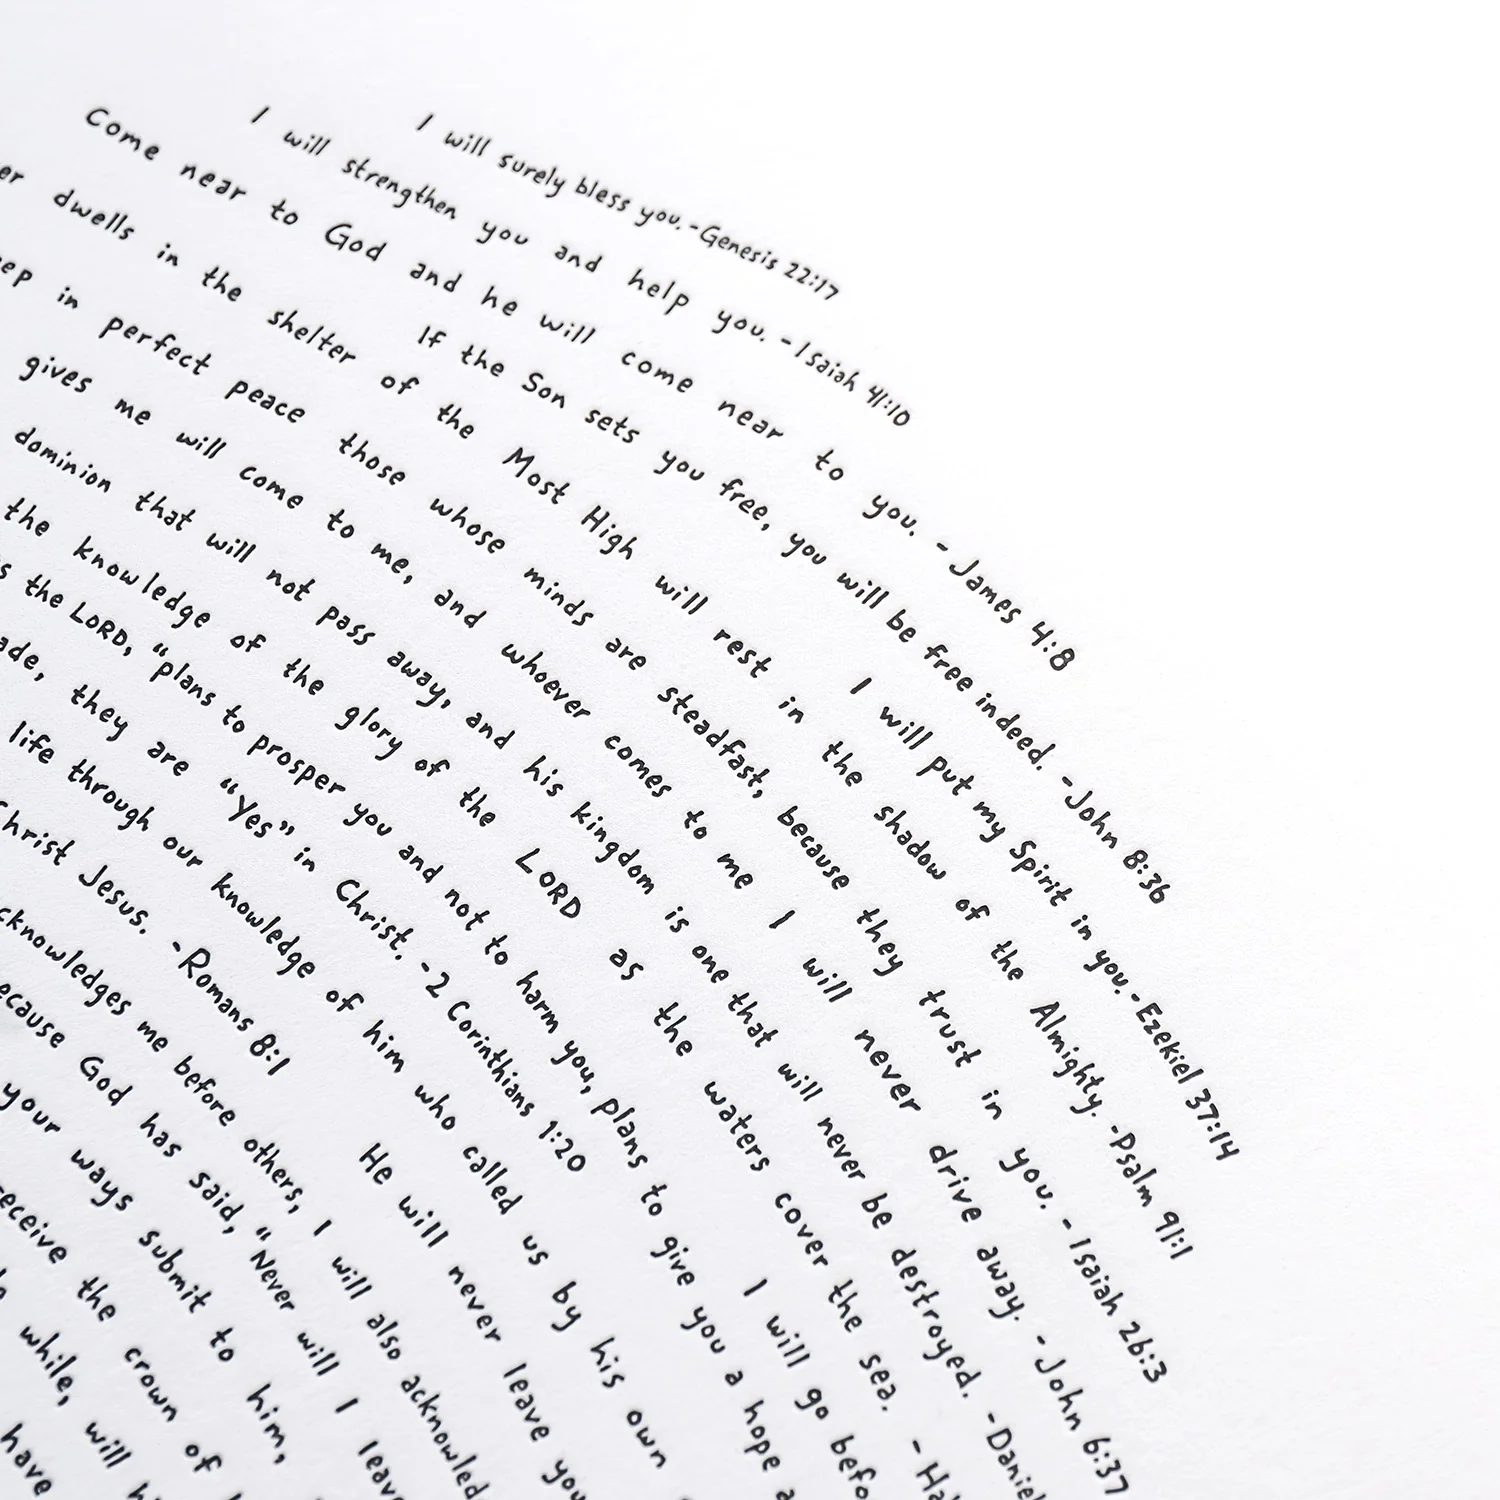 I will surely bless you.-Genesis 22:17
I will strengthen you and help you. -Isaiah 41:10
Come near to God and he will come near to you. - James 4:8
If the Son sets you free, you will be free indeed. -John 8:36
er dwells in the shelter of the Most High will rest in the shadow of the Almighty. -Psalm 91:1
I will put my Spirit in you.-Ezekiel 37:14
eep in perfect peace those whose minds are steadfast, because they trust in you. - Isaiah 26:3
gives me will come to me, and whoever comes to me I will never drive away. - John 6:37
dominion that will not pass away, and his kingdom is one that will never be destroyed. -Daniel
the knowledge of the glory of the LORD as the waters cover the sea. - Ha
s the LORD, “plans to prosper you and not to harm you, plans to give you a hope a
ade, they are “Yes” in Christ. -2 Corinthians 1:20
I will go befo
life through our knowledge of him who called us by his own
Christ Jesus. -Romans 8:1
He will never leave you
cknowledges me before others, I will also acknowled
ecause God has said, “Never will I leave
your ways submit to him,
receive the crown of
while, will h
have